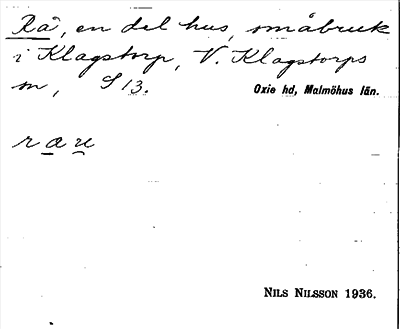 Rå, en del hus, småbruk
i Klagstorp, V. Klagstorps
sn, S 13. Oxie hd, Malmöhus län.
NILS NILSSON 1936.